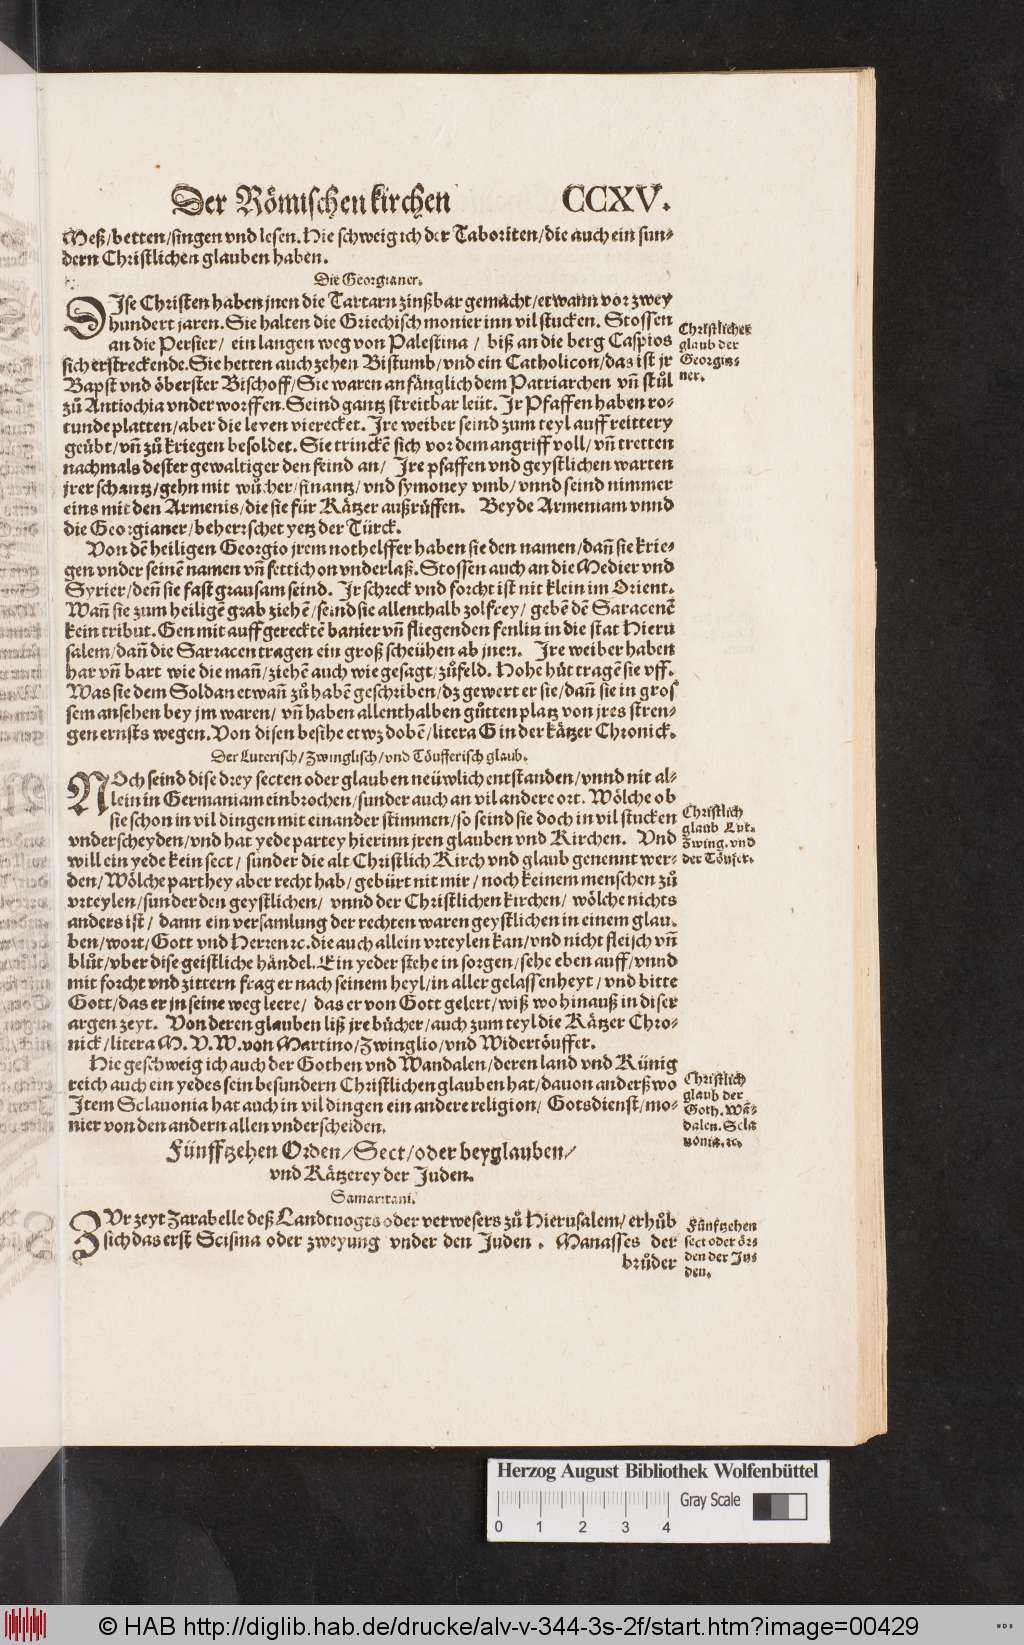 Der Römischen kirchen CCXV.
Meß/betten/singen vnd lesen. Hie schweig ich der Taboriten/die auch ein sun-
dern Christlichen glauben haben.
Die Georgianer.
DIse Christen haben jnen die Tartarn zinßbar gemacht/etwann vor zwey
hundert jaren. Sie halten die Griechisch monier inn vil stucken. Stossen
an die Persier/ ein langen weg von Palestina / biß an die berg Caspios
sich erstreckende. Sie hetten auch zehen Bistumb/vnd ein Catholicon/das ist jr
Bapst vnd öberster Bischoff/Sie waren anfänglich dem Patriarchen vñ stůl
zů Antiochia vnderworffen. Seind gantz streitbar leüt. Jr Pfaffen haben ro-
tunde platten/aber die leyen vierecket. Jre weiber seind zum teyl auff reittery
geübt/vñ zů kriegen besoldet. Sie trinckē sich vor dem angriff voll/vñ tretten
nachmals dester gewaltiger den feind an/ Jre pfaffen vnd geystlichen warten
jrer schantz/gehn mit wůcher/finantz/vnd symoney vmb/vnnd seind nimmer
eins mit den Armenis/die sie für Kätzer außrüffen. Beyde Armeniam vnnd
die Georgianer/beherrschet yetz der Türck.
Von dē heiligen Georgio jrem nothelffer haben sie den namen/dañ sie krie-
gen vnder seinē namen vñ fettich on vnderlaß. Stossen auch an die Medier vnd
Syrier/deñ sie fast grausam seind. Jr schreck vnd forcht ist nit klein im Orient.
Wañ sie zum heiligē grab ziehē/seind sie allenthalb zolfrey/ gebē dē Saracenē
kein tribut. Gen mit auffgerecktē banier vñ fliegenden fenlin in die stat Hieru
salem/dañ die Sarracen tragen ein groß scheühen ab jnen. Jre weiber haben
har vñ bart wie die mañ/ziehē auch wie gesagt/zůfeld. Hohe hůt tragē sie vff.
Was sie dem Soldan etwañ zů habē geschriben/dz gewert er sie/dañ sie in gros
sem ansehen bey jm waren/ vñ haben allenthalben gůtten platz von jres stren-
gen ernsts wegen. Von disen besihe etwz dobē/litera G in der kätzer Chronick.
Der Luterisch/Zwinglisch/vnd Töufferisch glaub.
NOch seind dise drey secten oder glauben neüwlich entstanden/vnnd nit al-
lein in Germaniam einbrochen/sunder auch an vil andere ort. Wölche ob
sie schon in vil dingen mit einander stimmen/so seind sie doch in vil stucken
vnderscheyden/vnd hat yede partey hierinn jren glauben vnd Kirchen. Vnd
will ein yede kein sect/ sunder die alt Christlich Kirch vnd glaub genennt wer-
den/Wölche parthey aber recht hab/ gebürt nit mir/noch keinem menschen zů
vrteylen/sunder den geystlichen/ vnnd der Christlichen kirchen/ wölche nichts
anders ist/ dann ein versamlung der rechten waren geystlichen in einem glau-
ben/wort/Gott vnd Herren ꝛc. die auch allein vrteylen kan/vnd nicht fleisch vñ
blůt/vber dise geistliche händel. Ein yeder stehe in sorgen/sehe eben auff/vnnd
mit forcht vnd zittern frag er nach seinem heyl/in aller gelassenheyt/vnd bitte
Gott/das er jn seine weg leere/ das er von Gott gelert/wiß wo hinauß in diser
argen zeyt. Von deren glauben liß jre bücher/auch zum teyl die Kätzer Chro-
nick/litera M. V. W. von Martino/Zwinglio/vnd Widertöuffer.
Hie geschweig ich auch der Gothen vnd Wandalen/deren land vnd Künig
reich auch ein yedes sein besundern Christlichen glauben hat/dauon anderßwo
Item Sclauonia hat auch in vil dingen ein andere religion/ Gotsdienst/mo-
nier von den andern allen vnderscheiden.
Fünffzehen Orden/Sect/oder beyglauben/
vnd Kätzerey der Juden.
Samaritani.
ZVr zeyt Zarabelle deß Landtuogts oder verwesers zů Hierusalem/erhůb
sich das erst Scisma oder zweyung vnder den Juden. Manasses der
brůder
Christlicher
glaub der
Georgia-
ner.
Christlich
glaub Lut.
Zwing. vnd
der Töufer.
Christlich
glaub der
Goth. Wā-
dalen. Scla
uonia. ꝛc.
Fünfzehen
sect oder ör-
den der Ju-
den.
Herzog August Bibliothek Wolfenbüttel
0 1 2 3 4
Gray Scale
© HAB http://diglib.hab.de/drucke/alv-v-344-3s-2f/start.htm?image=00429